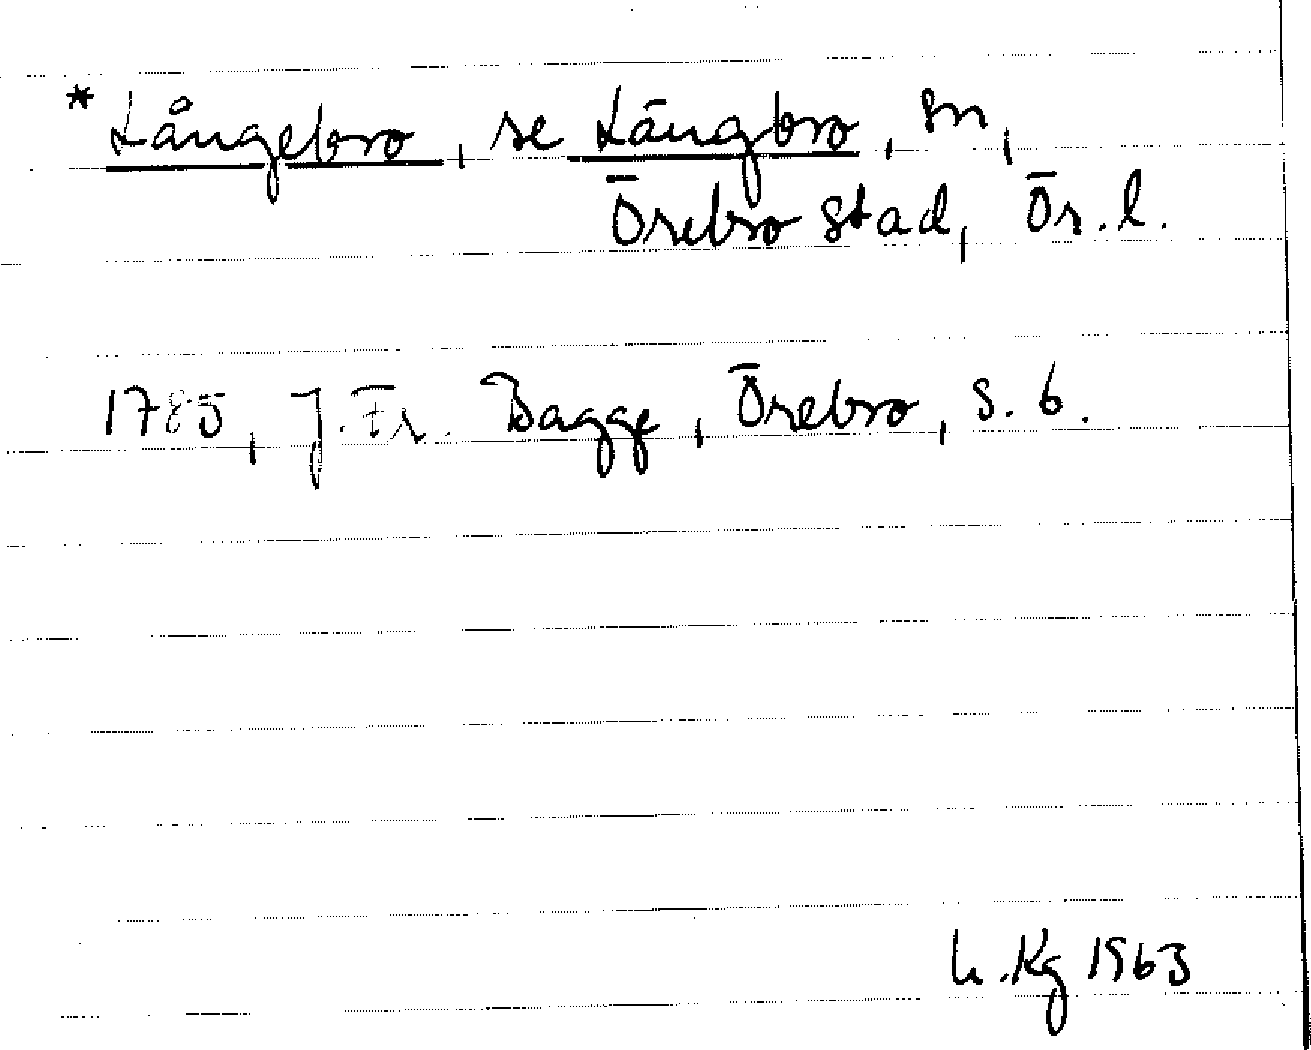 * Långebro, se Längbro, sn,
Örebro stad, Ör. l.
1785, J. Fr. Bagge, Örebro, s. 6.
h. Kg 1963